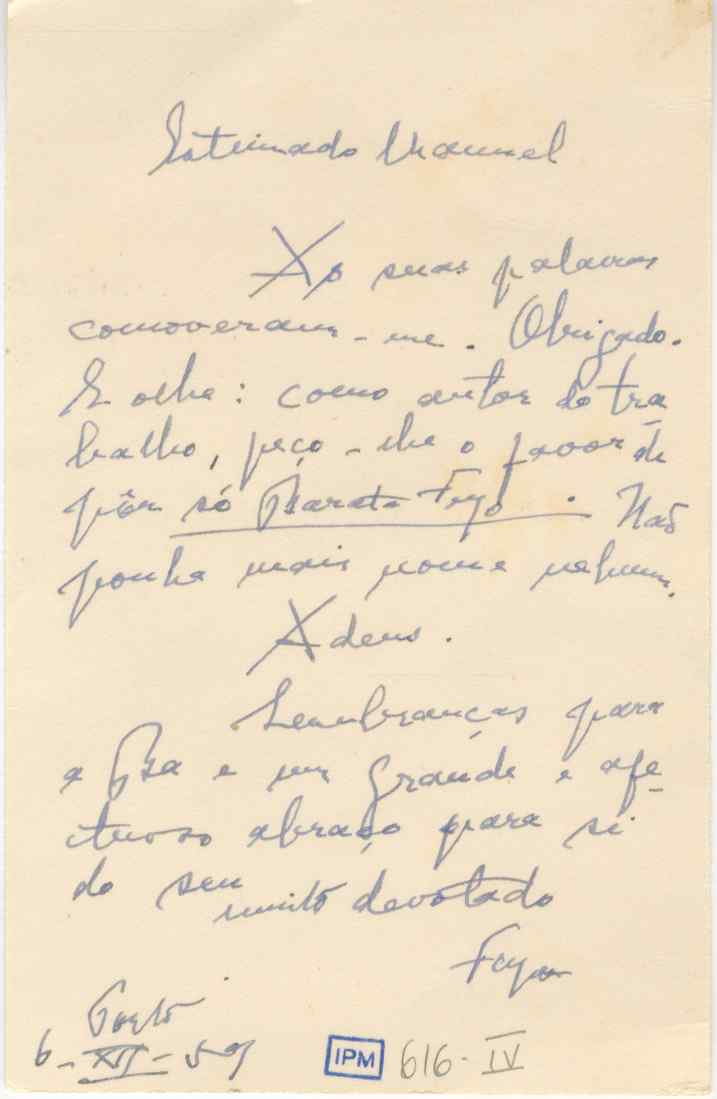 Estimado Manuel
As suas palavras
comoveram-me. Obrigado.
E olhe: como autor do tra
balho, peço-lhe o favor de
pôr só Barata Feyo. Não
ponha mais nome nenhum.
Adeus.
Lembranças para
a e um grande e afe-
ctuoso abraço para si
do seu
muito devotado
Feyo
Porto
6-XII-59
IPM 616-IV